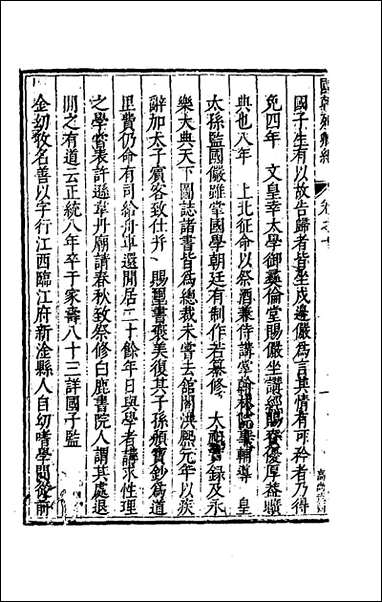 國子生有以故告歸者皆坐戍邊儼為言其情有可矜者乃得
免四年　文皇幸太學御彝倫堂賜儼坐講經賜賚優厚葢曠
典也八年　上北征命以祭酒兼侍講掌翰林院事輔導　皇
太孫監國儼雖掌國學朝廷有制作若纂修　太祖實錄及永
樂大典天下圖誌諸書皆為總裁未嘗去館閣洪熙元年以疾
辭加太子賓客致仕并　賜璽書褒美復其子孫頒寶鈔為道
里費仍命有司給舟車還閒居二十餘年日與學者講求性理
之學嘗表許遜韋丹廟請春秋致祭修白鹿書院人謂其處退
閒之有道云正統八年卒于家壽八十三詳國子監
金幼孜名善以字行江西臨江府新淦縣人自幼嗜學聞飲前